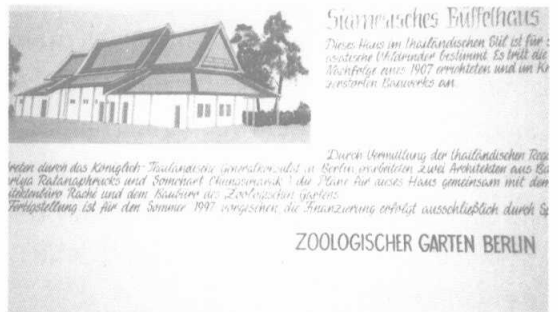 Siamesisches Büffelhaus
Dieses Haus im thailändischen Stil ist für
asiatische Wildrinder bestimmt. Es tritt die
Nachfolge eines 1907 errichteten und im
zerstörten Bauwerks an.
Durch Vermittlung der thailändischen
treten durch das Königlich-Thailändische Generalkonsulat in Berlin erarbeiteten zwei Architekten aus
Ratanaphrucks und die Pläne für dieses Haus gemeinsam mit dem
Rache und dem Baubüro des Zoologischen Gartens.
Fertigstellung ist für den Sommer 1997 vorgesehen, die Finanzierung erfolgt ausschließlich durch Sp
ZOOLOGISCHER GARTEN BERLIN